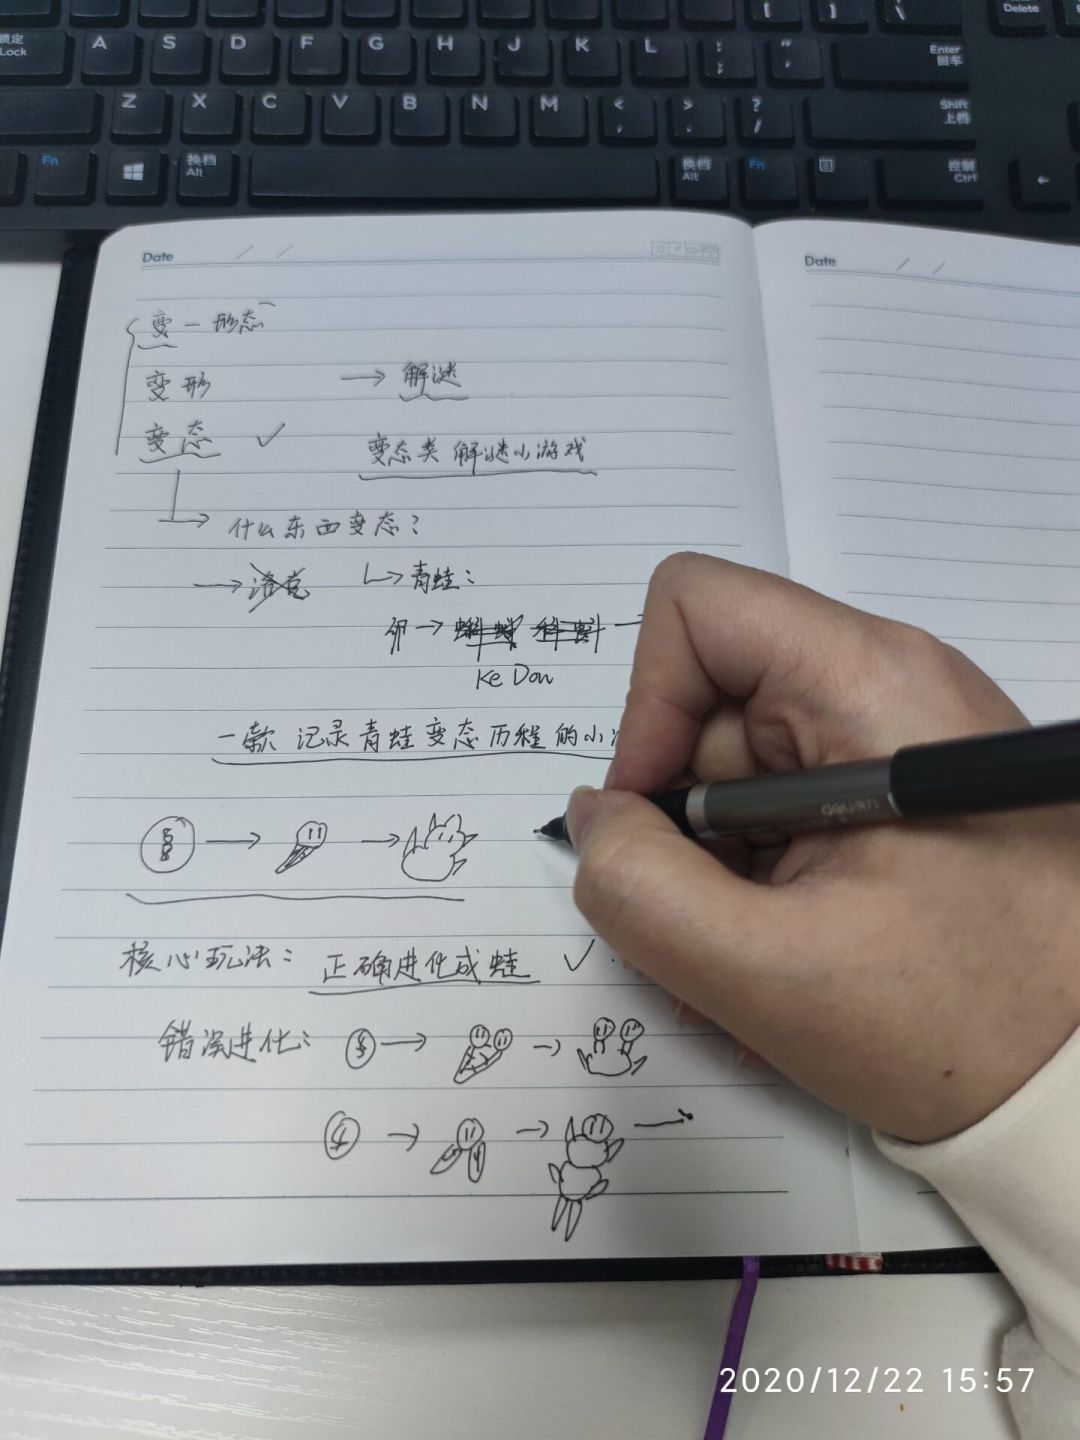 锁定
Lock
A S D F G H J K L
Delete
Enter
回车
Z X C V B N M < , > . ? /
Shift
上档
Fn
换档
Alt
换档
Alt
Fn
控制
Ctrl
Date / /
Date / /
变一形态
变形 → 解谜
变态 ✓ 变态类解谜小游戏
→ 什么东西变态?
→ 洛克 → 青蛙:
卵 → 蝌蚪 →
Ke Dou
一款记录青蛙变态历程的小
→ →
核心玩法: 正确进化成蛙 ✓
错误进化: → →
→ → →
deli
2020/12/22 15:57